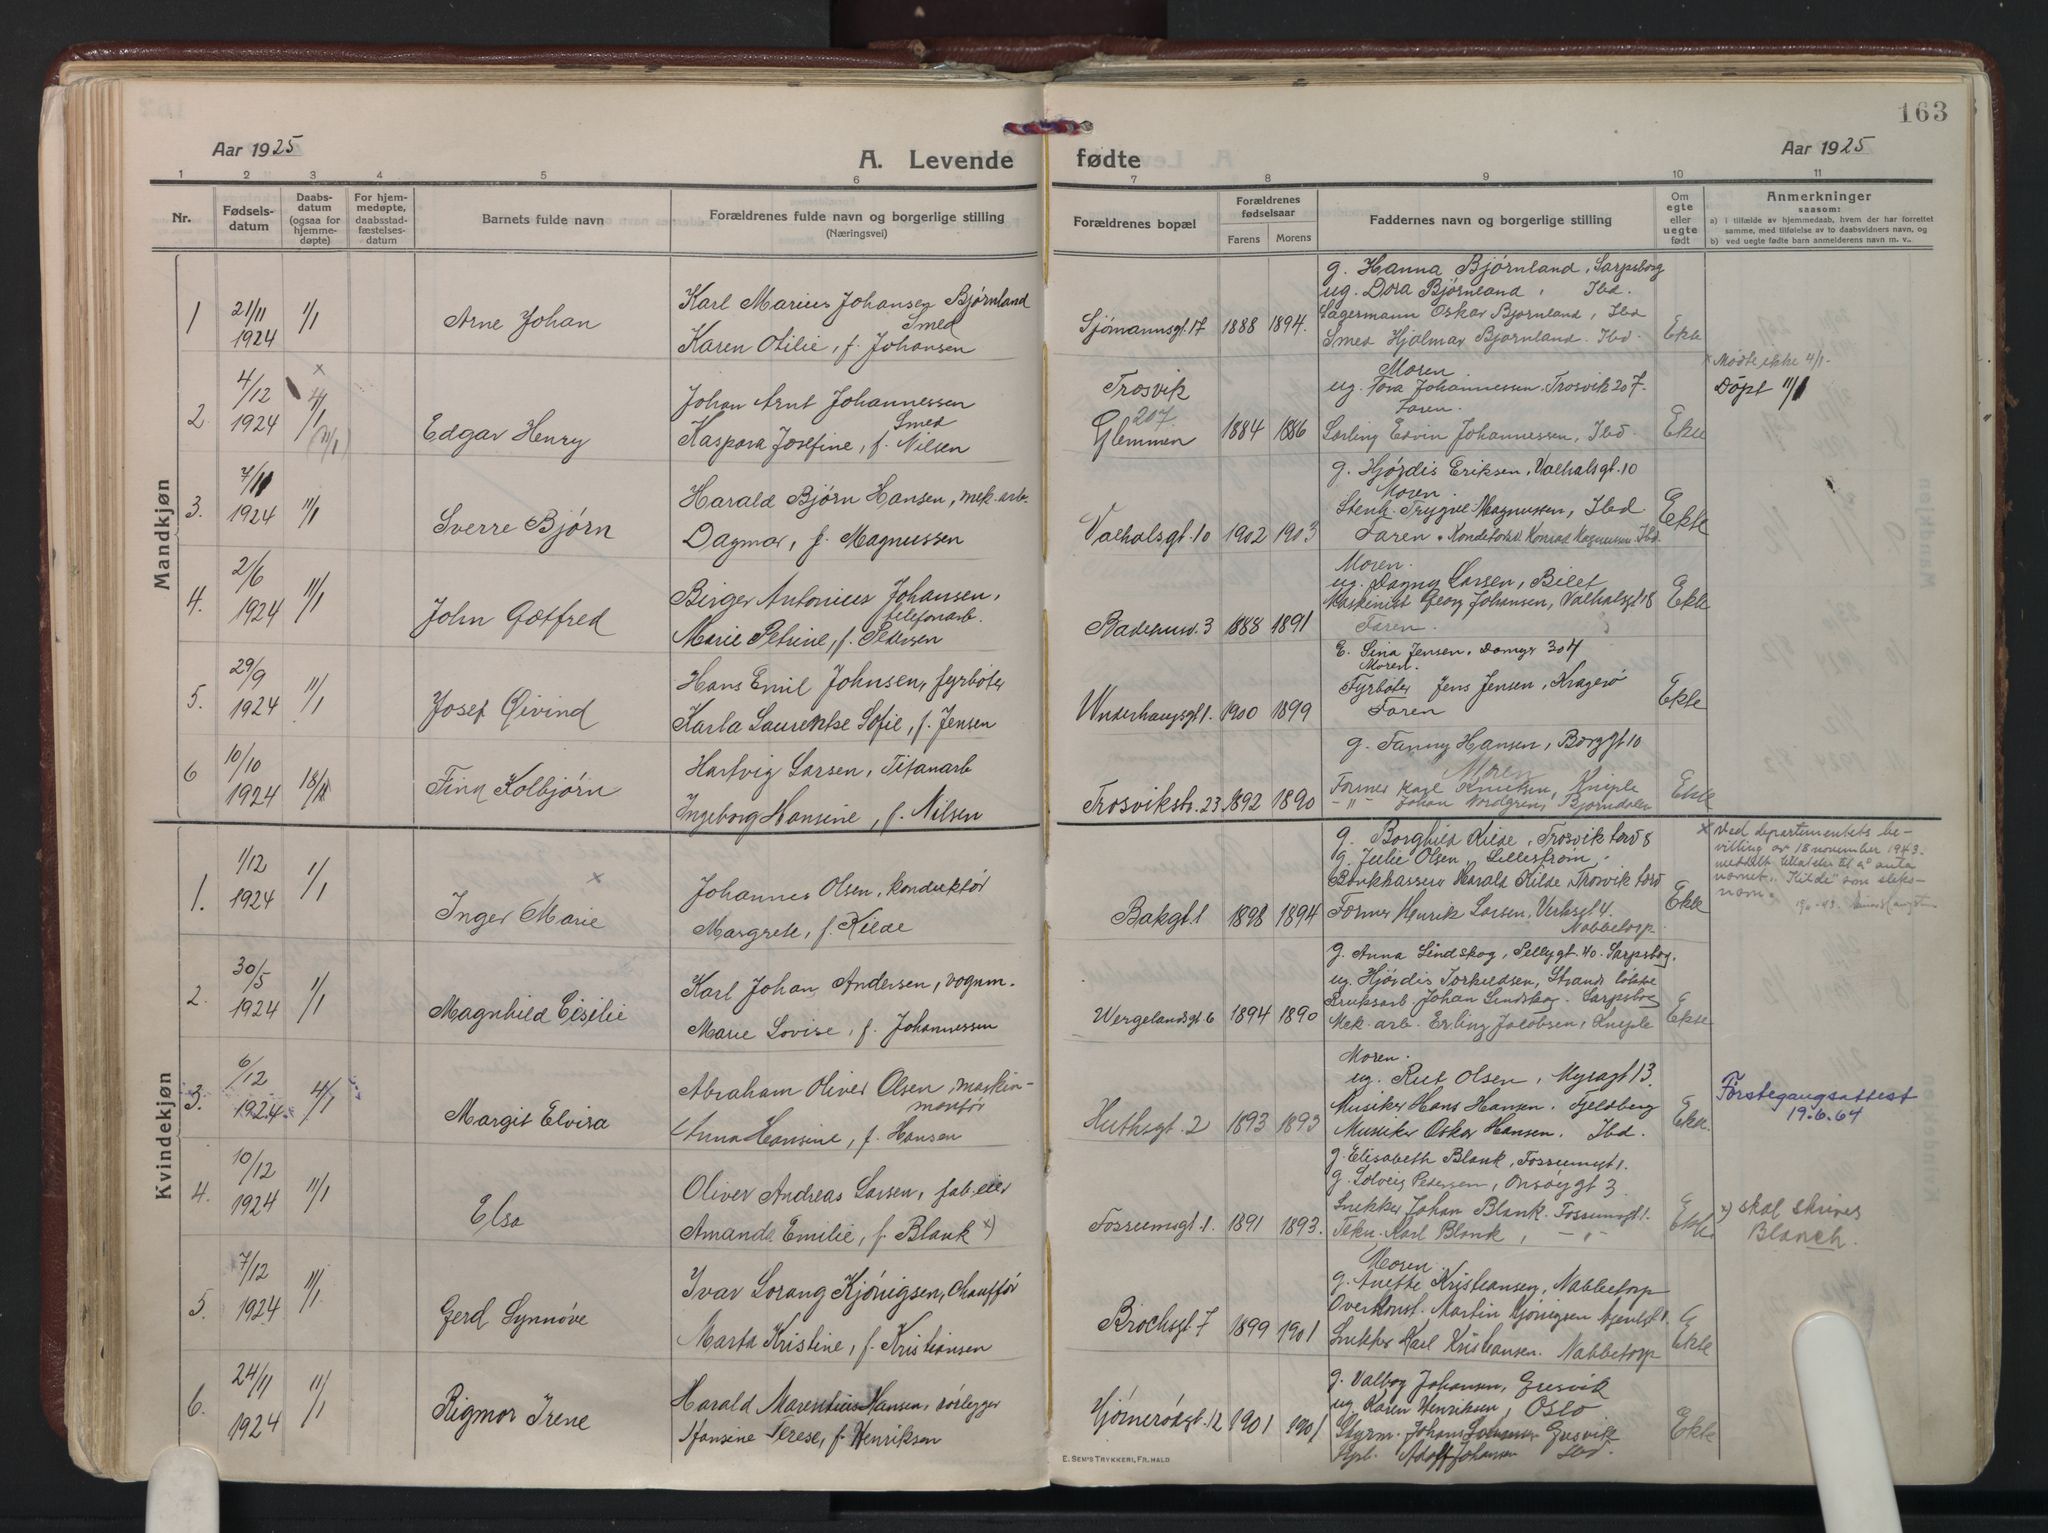 163
Aar 1925
A. Levende fødte
Aar 1925
1 2 3 4 5 6 7 8 9 10 11
Nr.
Fødsels-
datum
Daabs-
datum
(ogsaa for
hjemme-
døpte)
For hjem-
medøpte,
daabsstad-
fæstelses-
datum
Barnets fulde navn
Forældrenes fulde navn og borgerlige stilling
(Næringsvei)
Forældrenes bopæl
Forældrenes
fødselsaar
Farens
Morens
Faddernes navn og borgerlige stilling
Om
egte
eller
uegte
født
Anmerkninger
saasom:
a) i tilfælde av hjemmedaab, hvem der har forrettet
samme, med tilføielse av to daabsvidners navn, og
b) ved uegte fødte barn anmelderens navn m. v..
Mandkjøn
1
21/11
1924
1/1
Arne Johan
Karl Marius Johansen Bjørnland
Smed
Karen Otilie, f. Johansen
Sjømannsgt. 17
1888
1894.
g. Hanna Bjørnland, Sarpsborg
ug. Dora Bjørnland, Ibd.
Lagermann Oskar Bjørnland, Ibd
Smed Hjalmar Bjørnland. Ibd.
Ekte
2.
4/12
1924
x
4/1
(11/1)
Edgar Henry
Johan Arnt Johannessen
Smed
Kaspara Josefine, f. Nilsen
Trosvik
207.
Glemmen
1884
1886
Moren
ug. Tora Johannessen. Trosvik 207.
Faren.
Lærling Edvin Johannessen, Ibd.
Ekte
x Mødte ikke 4/1.
Døpt 11/1
3.
7/11
1924
11/1
Sverre Bjørn
Harald Bjørn Hansen, mek. arb.
Dagmar, f. Magnussen
Valhalsgt. 10
1902
1903
g. Hjørdis Eriksen, Valhalsgt. 10
Moren.
Stenh. Trygve Magnussen, Ibd
Faren. Konditorsv. Konrad Magnussen Ibd.
Ekte
4.
2/6
1924
11/1
John Gotfred
Birger Antonius Johansen,
telefonarb.
Marie Petrine, f. Pedersen
3
1888
1891
Moren.
ug. Dagny Larsen, Bilet
Maskinist Georg Johansen, Valhalsgt 18
Faren.
Ekte
5.
29/9
1924
11/1
Josef Øivind
Hans Emil Johnsen, fyrbøter
Karla Laurentse Sofie, f. Jensen
Underhaugsgt 1.
1900
1899
E. Lina Jensen, Damyr 304
Moren.
Fyrbøter Jens Jensen, Kragerø
Faren
Ekte
6
10/10
1924
18/1
Finn Kolbjørn
Hartvig Larsen, Titanarb
Ingeborg Hansine, f. Nilsen
Trosvikstr. 23
1892
1890
g. Fanny Hansen, Borggt 10
Moren
Former Karl Knutsen, Kniple
-"- Johan Nordgren, Bjørndalen
Ekte
Kvindekjøn
1.
1/12
1924
1/1
Inger Marie x
Johannes Olsen, konduktør
Margrete, f. Kilde
Bakgt. 1
1898
1894
g. Borghild Kilde, Trosvik
g. Julie Olsen, Lillestrøm.
Bankkasserer Harald Kilde, Trosvik
Former Henrik Larsen, Verksgt 4.
Nabbetorp.
Ekte
x Ved departementets be-
villing av 18 november 1943.
meddelt tillatelse til å anta
navnet "Kilde" som slekts-
navn.
2.
30/5
1924
1/1
Magnhild Cisilie
Karl Johan Andersen, vognm.
Marie Lovise, f. Johannessen
Wergelandsgt 6
1894
1890
g. Anna Lindskog, Pellygt. 40. Sarpsborg.
ug. Hjørdis Torkildsen, Strand løkke
Bruksarb Johan Lindskog. Sarpsborg
Mek. arb. Erling Jakobsen, Kniple
Ekte
3.
6/12
1924
4/1
Margit Elvira
Abraham Oliver Olsen, maskin-
montør
Anna Hansine, f. Hansen
Huthsgt. 2
1893
1893
Moren.
ug. Rut Olsen, Myragt 13.
Musiker Hans Hansen. Fjeldberg
Musiker Oskar Hansen. Ibd.
Ekte.
Førstegangsattest
19.6.64
4.
10/12
1924
11/1
Elsa
Oliver Andreas Larsen, fab.eier
Amanda Emilie, f. Blank x)
Fossumsgt. 1.
1891
1893.
g. Elisabeth Blank, Fossumsgt 1.
g. Solveig Pedersen, Onsøygt 3.
Snekker Johan Blank. Fossumsgt 1.
Tekn. Karl Blank, -"-
Ekte
x) skal skrives
Blanch.
5.
7/12
1924
11/1
Gerd Synnøve
Ivar Lorang Kjönigsen, Chauffør
Marta Kristine, f. Kristiansen
Brochsgt 7
1899
1901
Moren
g. Anette Kristiansen, Nabbetorp
Overkonst. Martin Kjönigsen
Snekker Karl Kristiansen. Nabbetorp
Ekte
6.
24/11
1924
11/1
Rigmor Irene
Harald Marentius Hansen, rørlegger
Hansine Terese, f. Henriksen
Gjømerødgt. 12
1901
1901
g. Valborg Johansen, Gresvik
ug Karen Henriksen, Oslo
Styrm. Johan Gresvik
Adolf Johansen Ibd.
Ekte
E. SEM'S TRYKKERI, FR.HALD